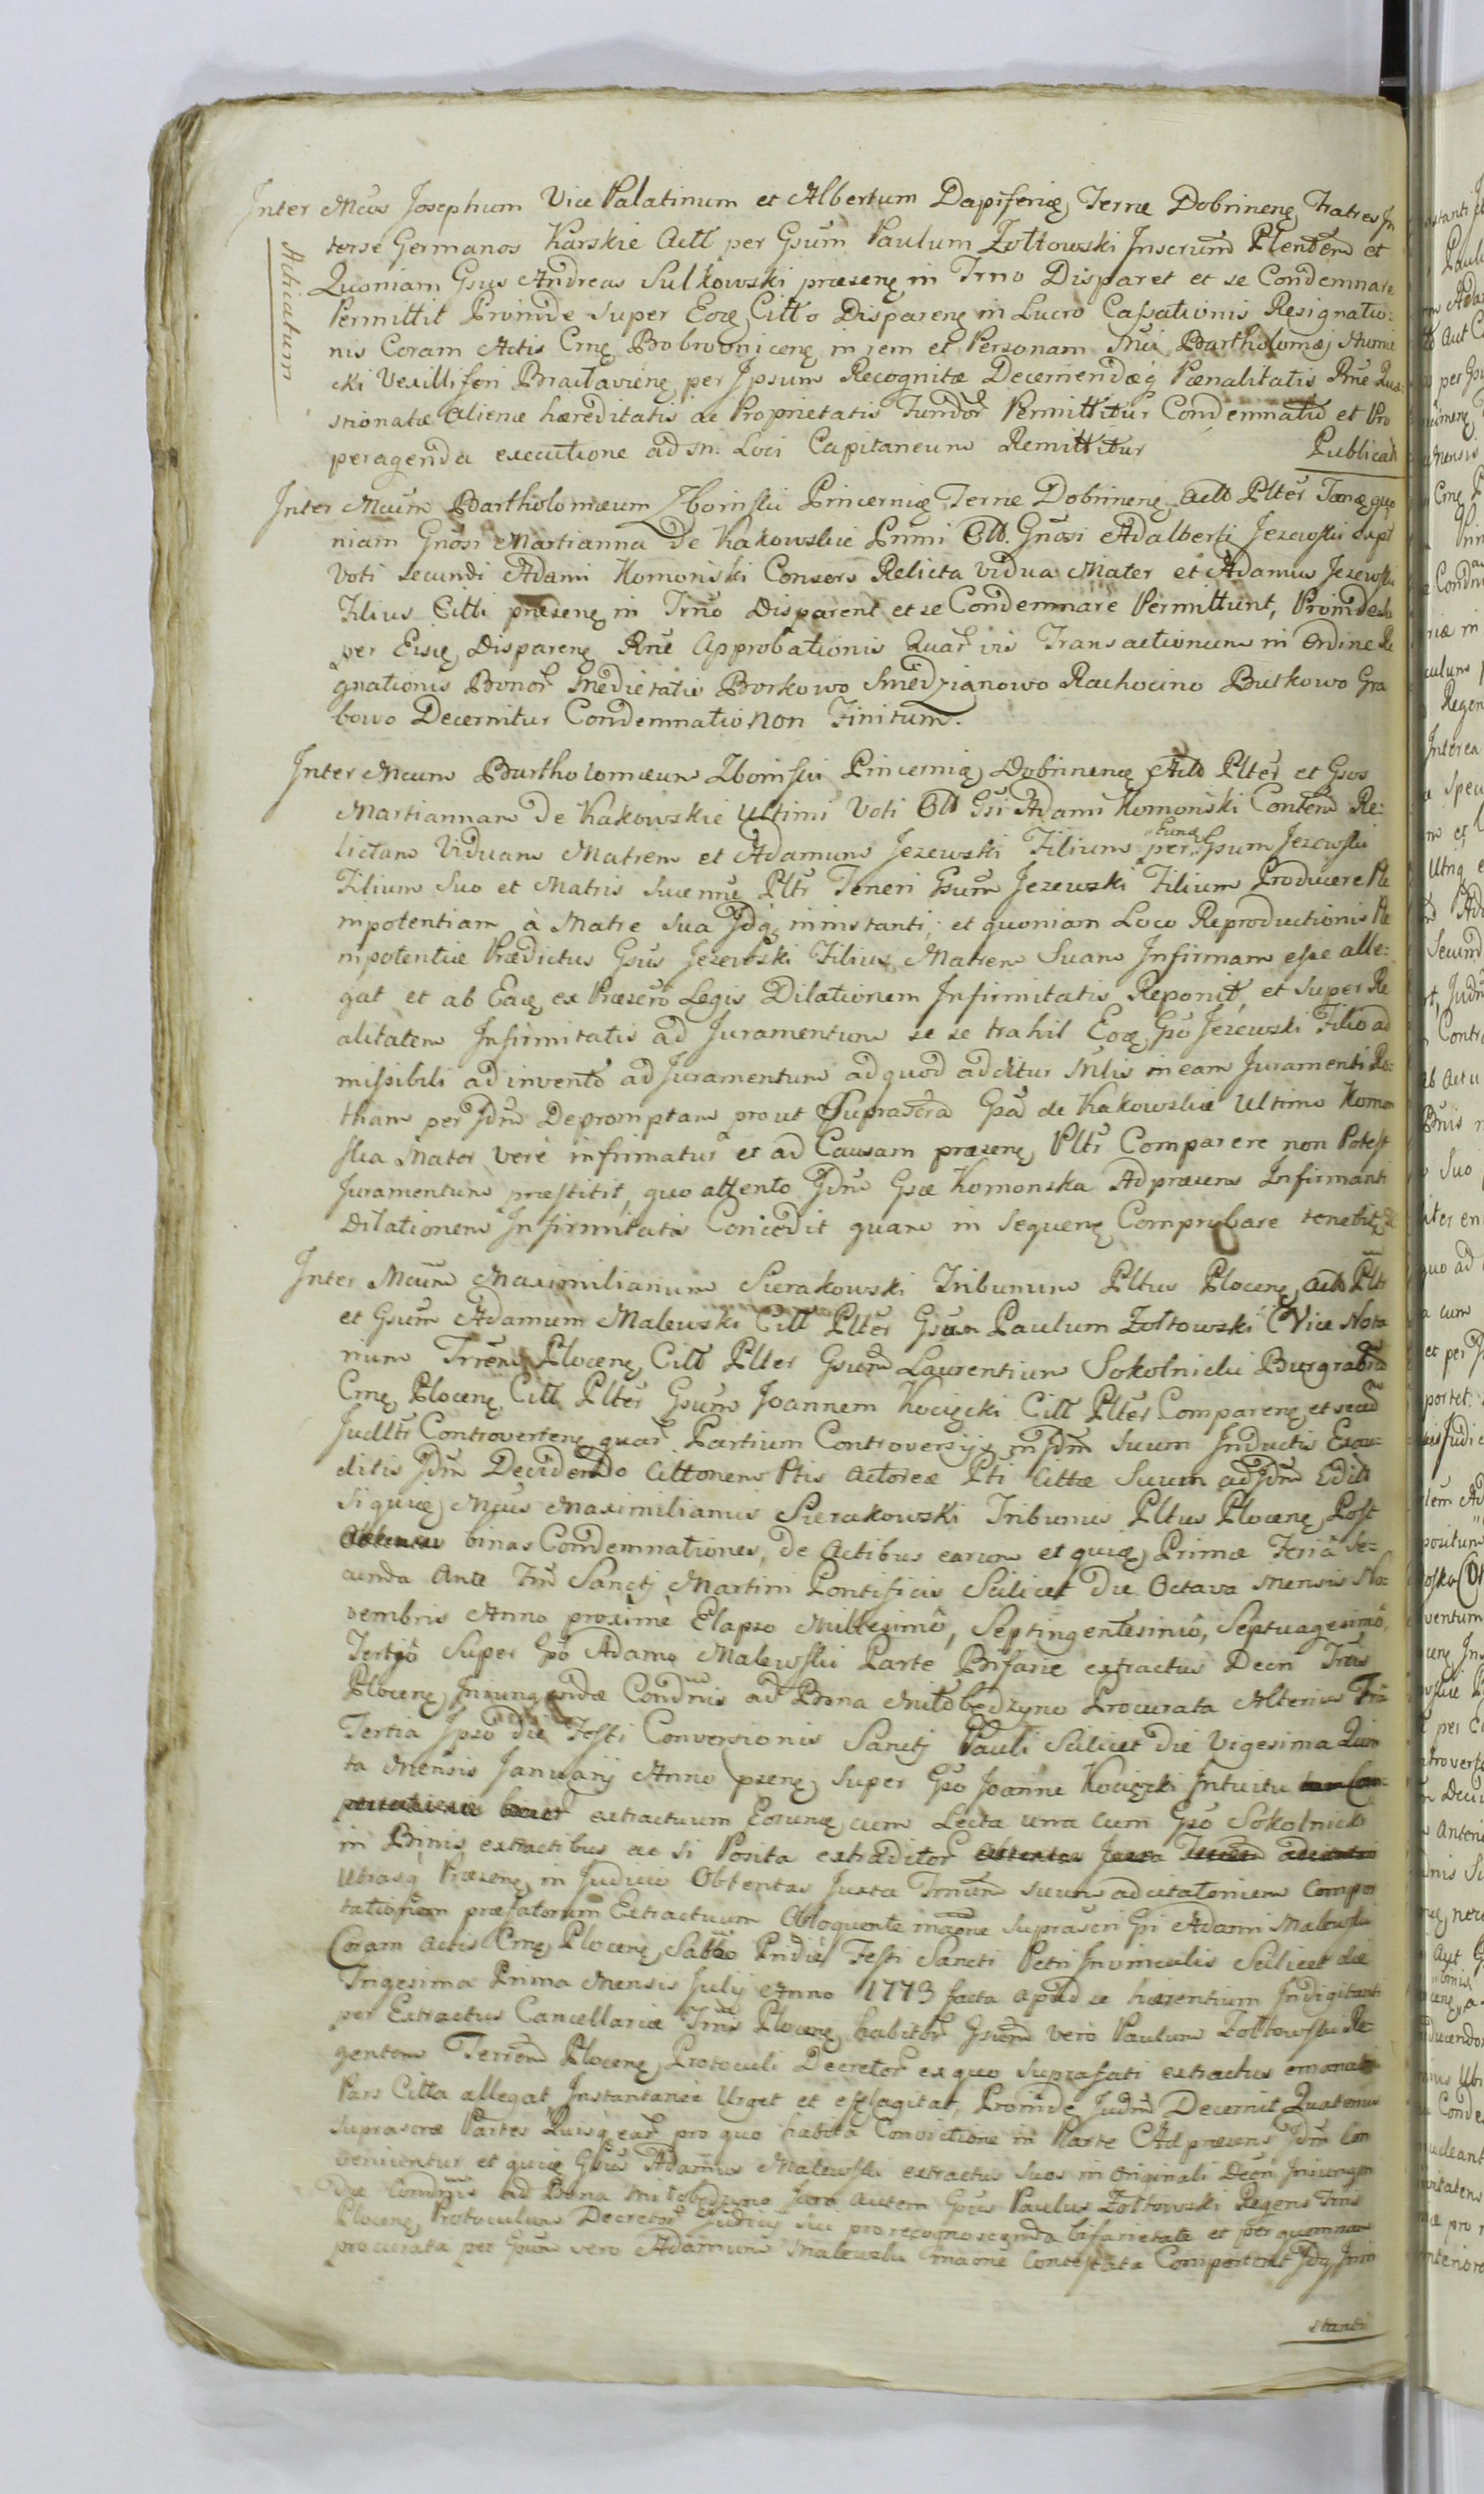 Inter Mcos Josephum Vice Palatinum et Albertum Dapiferię Terræ Dobrinenę Fratres In
terse Germanos Karskie Actt per Gsum Paulum Zołtowski Inscrum Plentem et
Quoniam Gsus Andreas Sulkowski præsenę in Trno Disparet et se Condemnare
Permittit Proinde super Eoę Citto Disparenę in Lucro Cassationis Resignatio:
nis Coram Actis Crnę Bobrovnicenę in rem et Personam Bartholomæj
cki Vexilliferi Braclaviene per Ipsum Recognitæ Decernendæq Pænalitatis Rne
stionatæ Alienæ hæreditatis ac Proprietatis Fundor Permittitur Condemnatio et Pro
peragenda executione ad sn. Loci Capitaneum Remittitur Publicat
Acticatum
Inter Mcum Bartholomæum Zboinski Pincernię Terræ Dobrinenę Actt Plter quo
niam Gnosi Martianna de Kakowskie Primi Olb. Gnosi Adalberti Jezewski
Voti secundi Adami Komonski Consors Relicta Vidua Mater et Adamus Jezewski
Filius Citti præsenę in Trno Disparent et se Condemnare Permittunt, Proinde su
per Eisę Disparenę Rne Approbationis Quar vis Transactionum in Ordine Re
gnationis Bonor Medietatis Borkowo Smedzianowo Rachocino Butkowo Gra
bowo Decernitur Condemnatio non Finitum.
Inter Mcum Bartholomæum Zboinski Pincernię Dobrinenę Actt Plter et Gsos
Martiannam de Kakowskie Ultimi Voti Olb Gsi Adami Komonski Contem Re:
lictam Viduam Matrem et Adamum Jezewski Filium per Eunę Gsum Jezewski
Filium Suo et Matris suæ nne Pltr Teneri Gsum Jezewski Filium Producere Ple
nipotentiam à Matre Sua Jdq ininstanti; et quoniam Loco Reproductionis Ple
nipotentiæ Prædictus Gsus Jezewski Filius Matrem Suam Infirmam esse alle:
gat et ab Eaę ex Præscro Legis Dilationem Infirmitatis Reponit, et super Re
alitatem Infirmitatis ad Juramentum se se trahit Eoę Gso Jezewski Filio ad
missibili ad invento ad Juramentum ad quod additur Mlis in eam Juramenti Ro:
tham per Jdm Depromptam prout Suprascra Gsa de Kakowskie Ultimo Komon
ska Mater verè infirmatur et ad Causam præsenę Pltr Comparere non Potest
Juramentum præstitit, quo attento Jdm Gsæ Komonska Ad præsens Infirmanti
Dilationem Infirmitatis Concedit quam in sequenę Comprobare tenebit
Inter Mcum Maximilianum Sierakowski Tribunum Pltus Plocenę Actt Pltr
et Gsum Adamum Malewski Citt Plter Gsum Paulum Zołtowski Vice Nota
rium Trrem Plocenę Citt Plter Gsum Laurentium Sokolnicki Burgrabium
Crnę Plocenę Citt Plter Gsum Joannem Kocięcki Citt Plter Comparenę et
Judltr Controvertenę quar Partium Controversijs in Jdm suum Inductis Exau:
ditis Jdm Decidendo Cittonem Ptis Actoreæ Pti Cittæ Suum ad Jdm Edit
Siquię Mcus Maximilianus Sierakowski Tribunus Pltus Plocenę Post
binas Condemnationes, de Actibus earum et quię Primæ Feria Se:
cunda Ante Fm Sanctj Martini Pontificis Scilicet Die Octava Mensis No:
vembris Anno proximè Elapso Millesimo, Septingentesimo, Septuagesimo,
Tertio super Gso Adamo Malewski Parte Bifarie extractus Decri Trris
Plocenę Iniungendæ Condnis ad Bona Miłobędzyno Procurata Alterius
Tertia Ipso die Festi Conversionis Sanctj Pauli Scilicet die Vigesima Quin
ta Mensis Januarij Anno præsenę super Gso Joanne Kocięcki Intuitu
extractuum Eorunę cum Lecta una cum Gso Sokolnicki
in Binis extractibus ac si Posita extraditor
Utrasq Præsenę in Judicio Obtentas Juxta Trnum suum adcitatonium Compor
tationem præfatorum Extractuum Obloquente maone suprascri Gsi Adami Malewski
Coram Actis Crnę Plocenę Sabbo Pridiè Festi Sancti Petri In vinculis Scilicet die
Trigesima Prima Mensis Julij Anno 1773 facta apud se hærentium Indigitant
per Extractus Cancellariæ Trris Plocenę habitor Gsum verò Paulum Zołtowski Re
gentem Terrem Plocenę Protoculi Decretor ex quo suprafati extractus emanati
Pars Citta allegat Instantanee Urget et efflagitat, Proinde Judm Decernit Quatenus
Suprascræ Partes Quisq ear pro quo habita Convictione in Parte Ad præsens Jdm Con
veniuntur et quię Gsus Adamus Malewski extractus suos in Originali Decri Iniungen
dæ Condnis ad Bona Miłobędzyno Juro autem Gsus Paulus Zołtowski Regens Trris
Plocenę Protoculum Decretor Judicij sui pro recognoscenda bifarietate et per quemnam
procurata per Gsum vero Adamum Malewski maone Contestata Comportent Jdq Inin
stanti